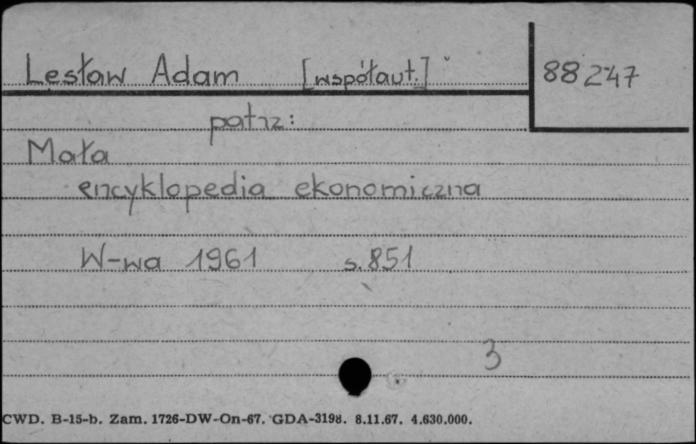 Lesław Adam [współaut.]
88247
patrz:
Mała
encyklopedia ekonomiczna
W-wa 1961 s.851
3
CWD. B-15-b. Zam. 1726-DW-On-67. GDA-3198. 8.11.67. 4.630.000.